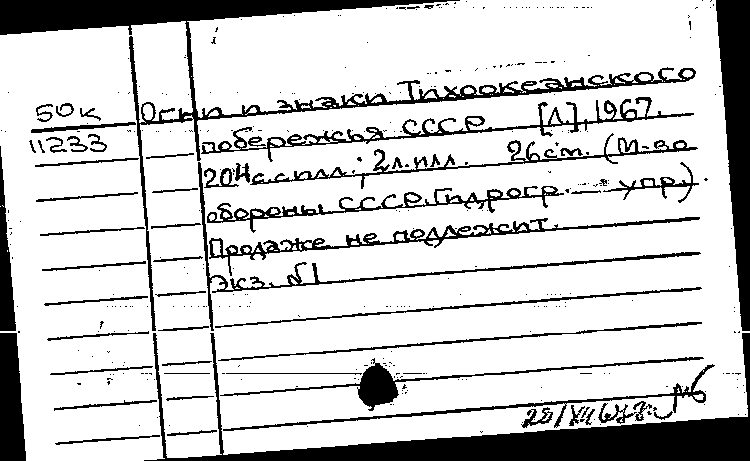 50к Огни и знаки Тихоокеанского
11233 побережья СССР. [Л.], 1967.
204 с. с илл.; 2 л. илл. 26 cm. (М-во
обороны СССР. Гидрогр. упр.).
Продаже не подлежит.
Экз. №1